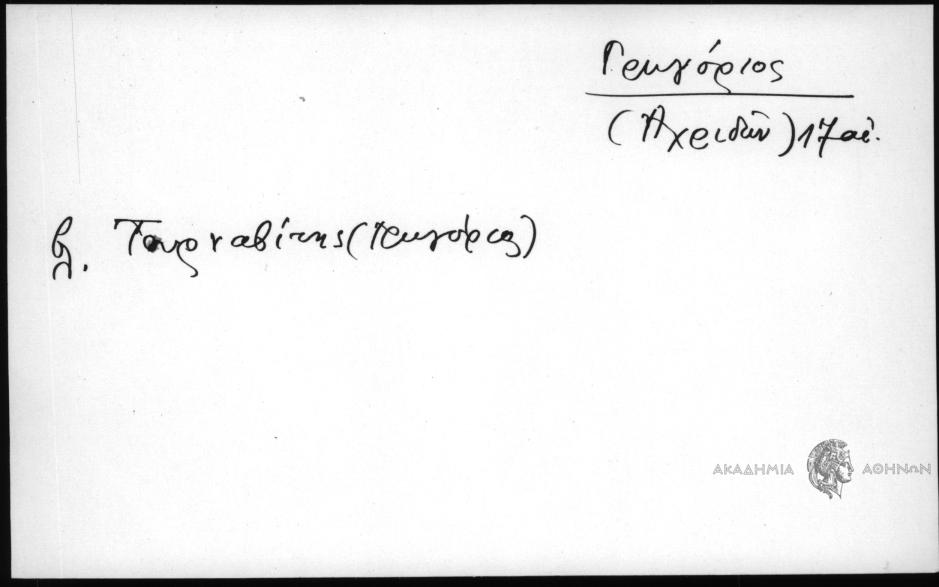 Γρηγόριος
(Ἀχριδῶν) 17 αἰ.
βλ. Τουρναβίτης (Γρηγόριος)
ΑΚΑΔΗΜΙΑ ΑΘΗΝΩΝ